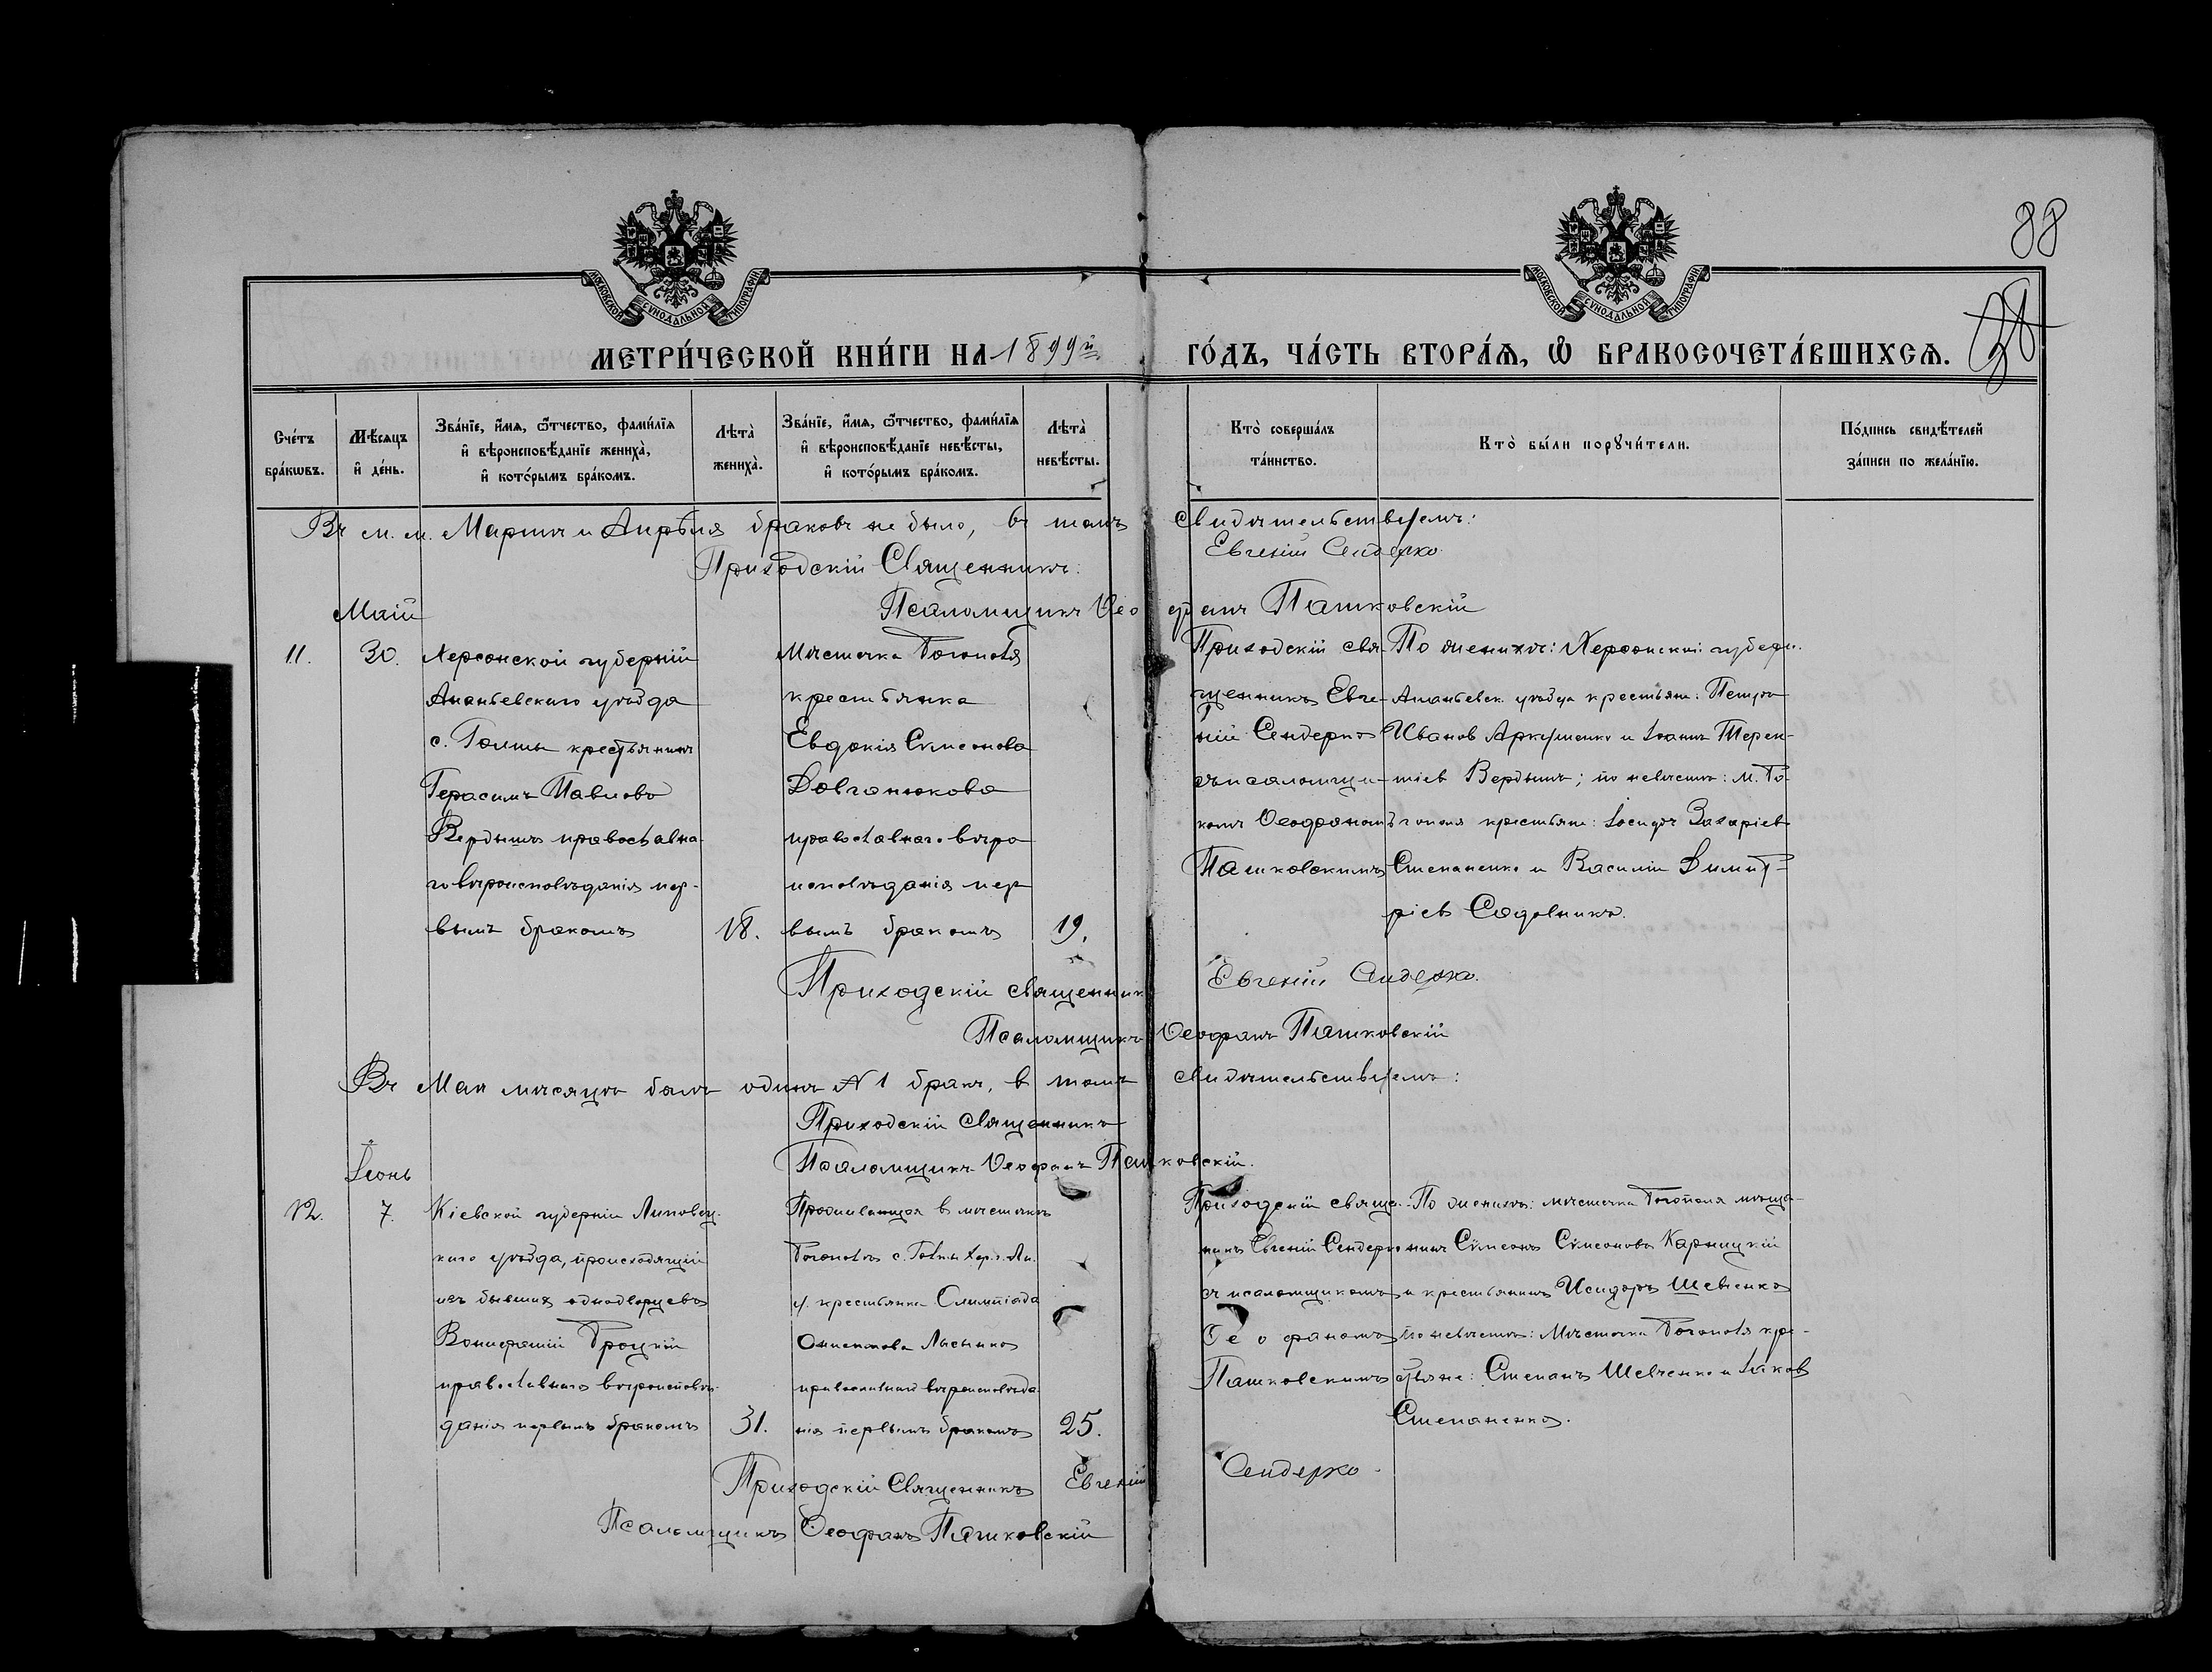 88
МОСКОВСКОЙ СУНОДАЛЬНОЙ ТИПОГРАФІИ
МОСКОВСКОЙ СУНОДАЛЬНОЙ ТИПОГРАФІИ
МЕТРИ́ЧЕСКОЙ КНИ́ГИ НА 1899й ГО́ДЪ, ЧА́СТЬ ВТОРА́Я, Ѡ БРАКОСОЧЕТА́ВШИХСЯ.
Сче́тъ бра́кѡвъ.
Мѣ́сяцъ и҆ де́нь.
Зва́нїе, и҆́мя, ѻ҆́тчество, фами́лїя и҆ вѣроисповѣ́данїе жениха̀, и҆ кото́рымъ бра́комъ.
Лѣта̀ жениха̀.
Зва́нїе, и҆́мя, ѻ҆́тчество, фами́лїя и҆ вѣроисповѣ́данїе невѣ́сты, и҆ кото́рымъ бра́комъ.
Лѣта̀ невѣ́сты.
Кто̀ соверша́лъ та́инство.
Кто̀ бы́ли порꙋчи́тели.
По́дпись свидѣ́телей за́писи по жела́нїю.
Въ м. м. Мартѣ и Апрѣлѣ браковъ не было, въ томъ свидѣтельствуемъ:
Приходскій Священникъ: Евгеній Сендерко
Псаломщикъ Ѳеофанъ Пашковскій
Маій
11.
30.
Херсонской губерніи
Ананьевскаго уѣзда
с. Голмы крестьянинъ
Герасимъ Павловъ
Вердышъ православна-
го вѣроисповѣданія пер-
вымъ бракомъ
18.
Мѣстечка Богополя
крестьянка
Евдокія Симеонова
Довганюкова
православнаго вѣро
исповѣданія пер
вымъ бракомъ
19.
Приходскій свя-
щенникъ Евге-
ній Сендерко
съ псаломщи-
комъ Ѳеофаномъ
Пашковскимъ
По женихѣ: Херсонской губерн.
Ананьевск. уѣзда крестьяне: Петръ
Ивановъ и Іоаннъ Терен-
тіевъ Вердышъ; по невѣстѣ: м. Бо-
гополя крестьяне: Захаріевъ
Степаненко и Василій Димит-
ріевъ Садовникъ.
Приходскій священникъ Евгеній Сендерко.
Псаломщикъ Ѳеофанъ Пашковскій
Въ Маѣ мѣсяцѣ былъ одинъ № 1 бракъ, въ томъ свидѣтельствуемъ:
Приходскій Священникъ
Псаломщикъ Ѳеофанъ Пашковскій.
Іюнь
12.
7.
Кіевской губерніи Липовец-
каго уѣзда, происходящій
изъ бывшихъ однодворцевъ
Вонифатій Броцкій
православнаго вѣроисповѣ-
данія первымъ бракомъ
31.
Проживающая въ мѣстечкѣ
Богополѣ с. Голмы Хер. г. Ан.
у. крестьянка Олимпіада
Онисимова
православнаго вѣроисповѣда
нія первымъ бракомъ
25.
Приходскій священ-
никъ Евгеній Сендерко
съ псаломщикомъ
Ѳеофаномъ
Пашковскимъ
По женихѣ: мѣстечка Богополя мѣща-
нинъ Симеонъ Симеоновъ Карницкій
и крестьянинъ Исидоръ Шевченко
по невѣстѣ: Мѣстечка Богополя кре-
стьяне: Степанъ Шевченко и Іаковъ
Степаненко.
Приходскій Священникъ Евгеній Сендерко
Псаломщикъ Ѳеофанъ Пашковскій